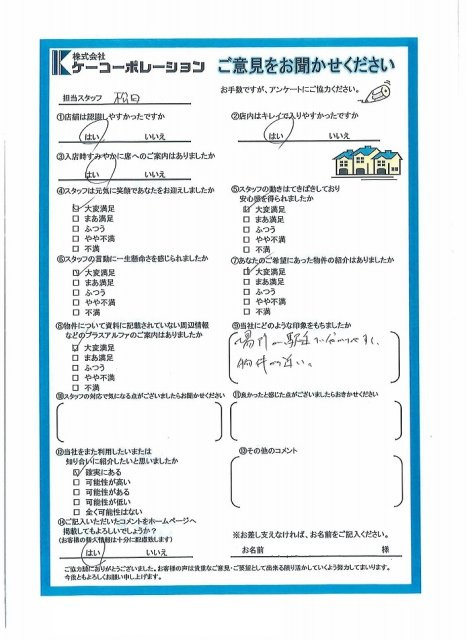 株式会社
ケーコーポレーション
ご意見をお聞かせください
お手数ですが、アンケートにご協力ください。
担当スタッフ 松田
①店舗は認識しやすかったですか
はい いいえ
②店内はキレイで入りやすかったですか
はい いいえ
③入店時すみやかに席へのご案内はありましたか
はい いいえ
④スタッフは元気に笑顔であなたをお迎えしましたか
大変満足
まあ満足
ふつう
やや不満
不満
⑤スタッフの動きはてきぱきしており
安心感を得られましたか
大変満足
まあ満足
ふつう
やや不満
不満
⑥スタッフの言動に一生懸命さを感じられましたか
大変満足
まあ満足
ふつう
やや不満
不満
⑦あなたのご希望にあった物件の紹介はありましたか
大変満足
まあ満足
ふつう
やや不満
不満
⑧物件について資料に記載されていない周辺情報
などのプラスアルファのご案内はありましたか
大変満足
まあ満足
ふつう
やや不満
不満
⑨当社にどのような印象をもちましたか
場所が駅近で
物件から近い。
⑩スタッフの対応で気になる点がございましたらお聞かせください
⑪良かったと感じた点がございましたらおきかせください
⑫当社をまた利用したいまたは
知り合いに紹介したいと思いましたか
確実にある
可能性が高い
可能性がある
可能性が低い
全く可能性はない
⑬その他のコメント
⑭ご記入いただいたコメントをホームページへ
掲載してもよろしいでしょうか?
(お客様の個人情報は十分に配慮致します)
はい いいえ
※お差し支えなければ、お名前をご記入ください。
お名前 様
ご協力誠にありがとうございました。お客様の声は貴重なご意見・ご要望として出来る限り活かしていくよう努力してまいります。
今後ともよろしくお願い申し上げます。